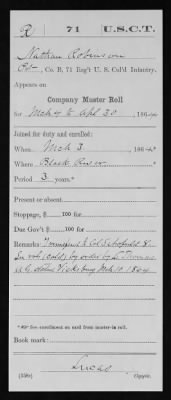 R | 71 | U.S.C.T.
Nathan Robinson
Pvt, Co. B, 71 Reg't U. S. Col'd Infantry.
Appears on
Company Muster Roll
for Mch 4 to Apl 30, 1864
Joined for duty and enrolled:
When Mch 3, 186 4*
Where Black River
Period 3 years.*
Present or absent
Stoppage, $ 100 for
Due Gov't $ 100 for
Remarks:
by order of L. Thomas
Vicksburg Mch 10 1864
*See enrollment on card from muster-in roll.
Book mark:
Lucas
(358) Copyist.